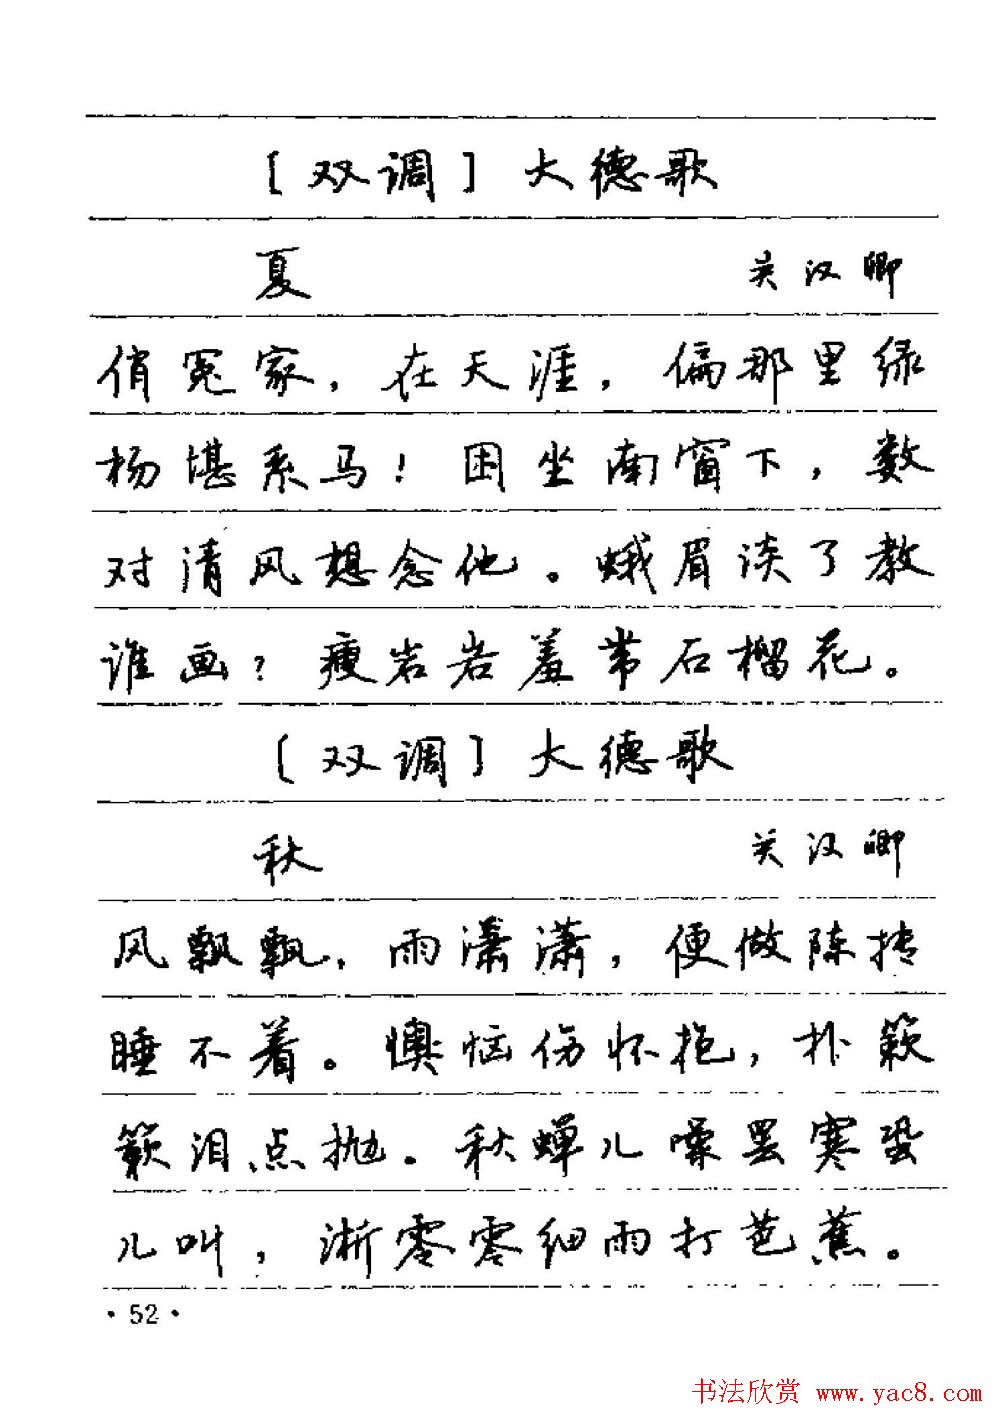 ［双调］大德歌
夏 关汉卿
俏冤家，在天涯，偏那里绿
杨堪系马！困坐南窗下，数
对清风想念他。蛾眉淡了教
谁画？瘦岩岩羞带石榴花。
［双调］大德歌
秋 关汉卿
风飘飘，雨潇潇，便做陈抟
睡不着。懊恼伤怀抱，扑簌
簌泪点抛。秋蝉儿噪罢寒蛩
儿叫，淅零零细雨打芭蕉。
·52·
书法欣赏 www.yac8.com